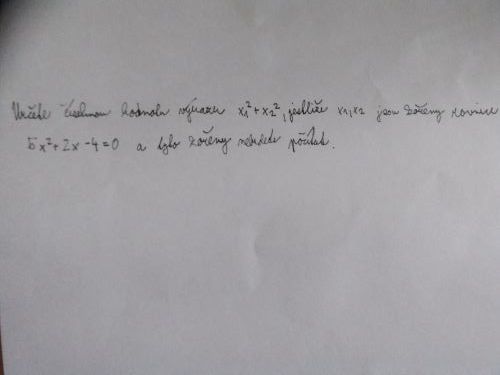 Určete číselnou hodnotu výrazu x₁² + x₂², jestliže x₁,x₂ jsou kořeny rovnice
5x² + 2x - 4 = 0 a tyto kořeny nebudete počítat.